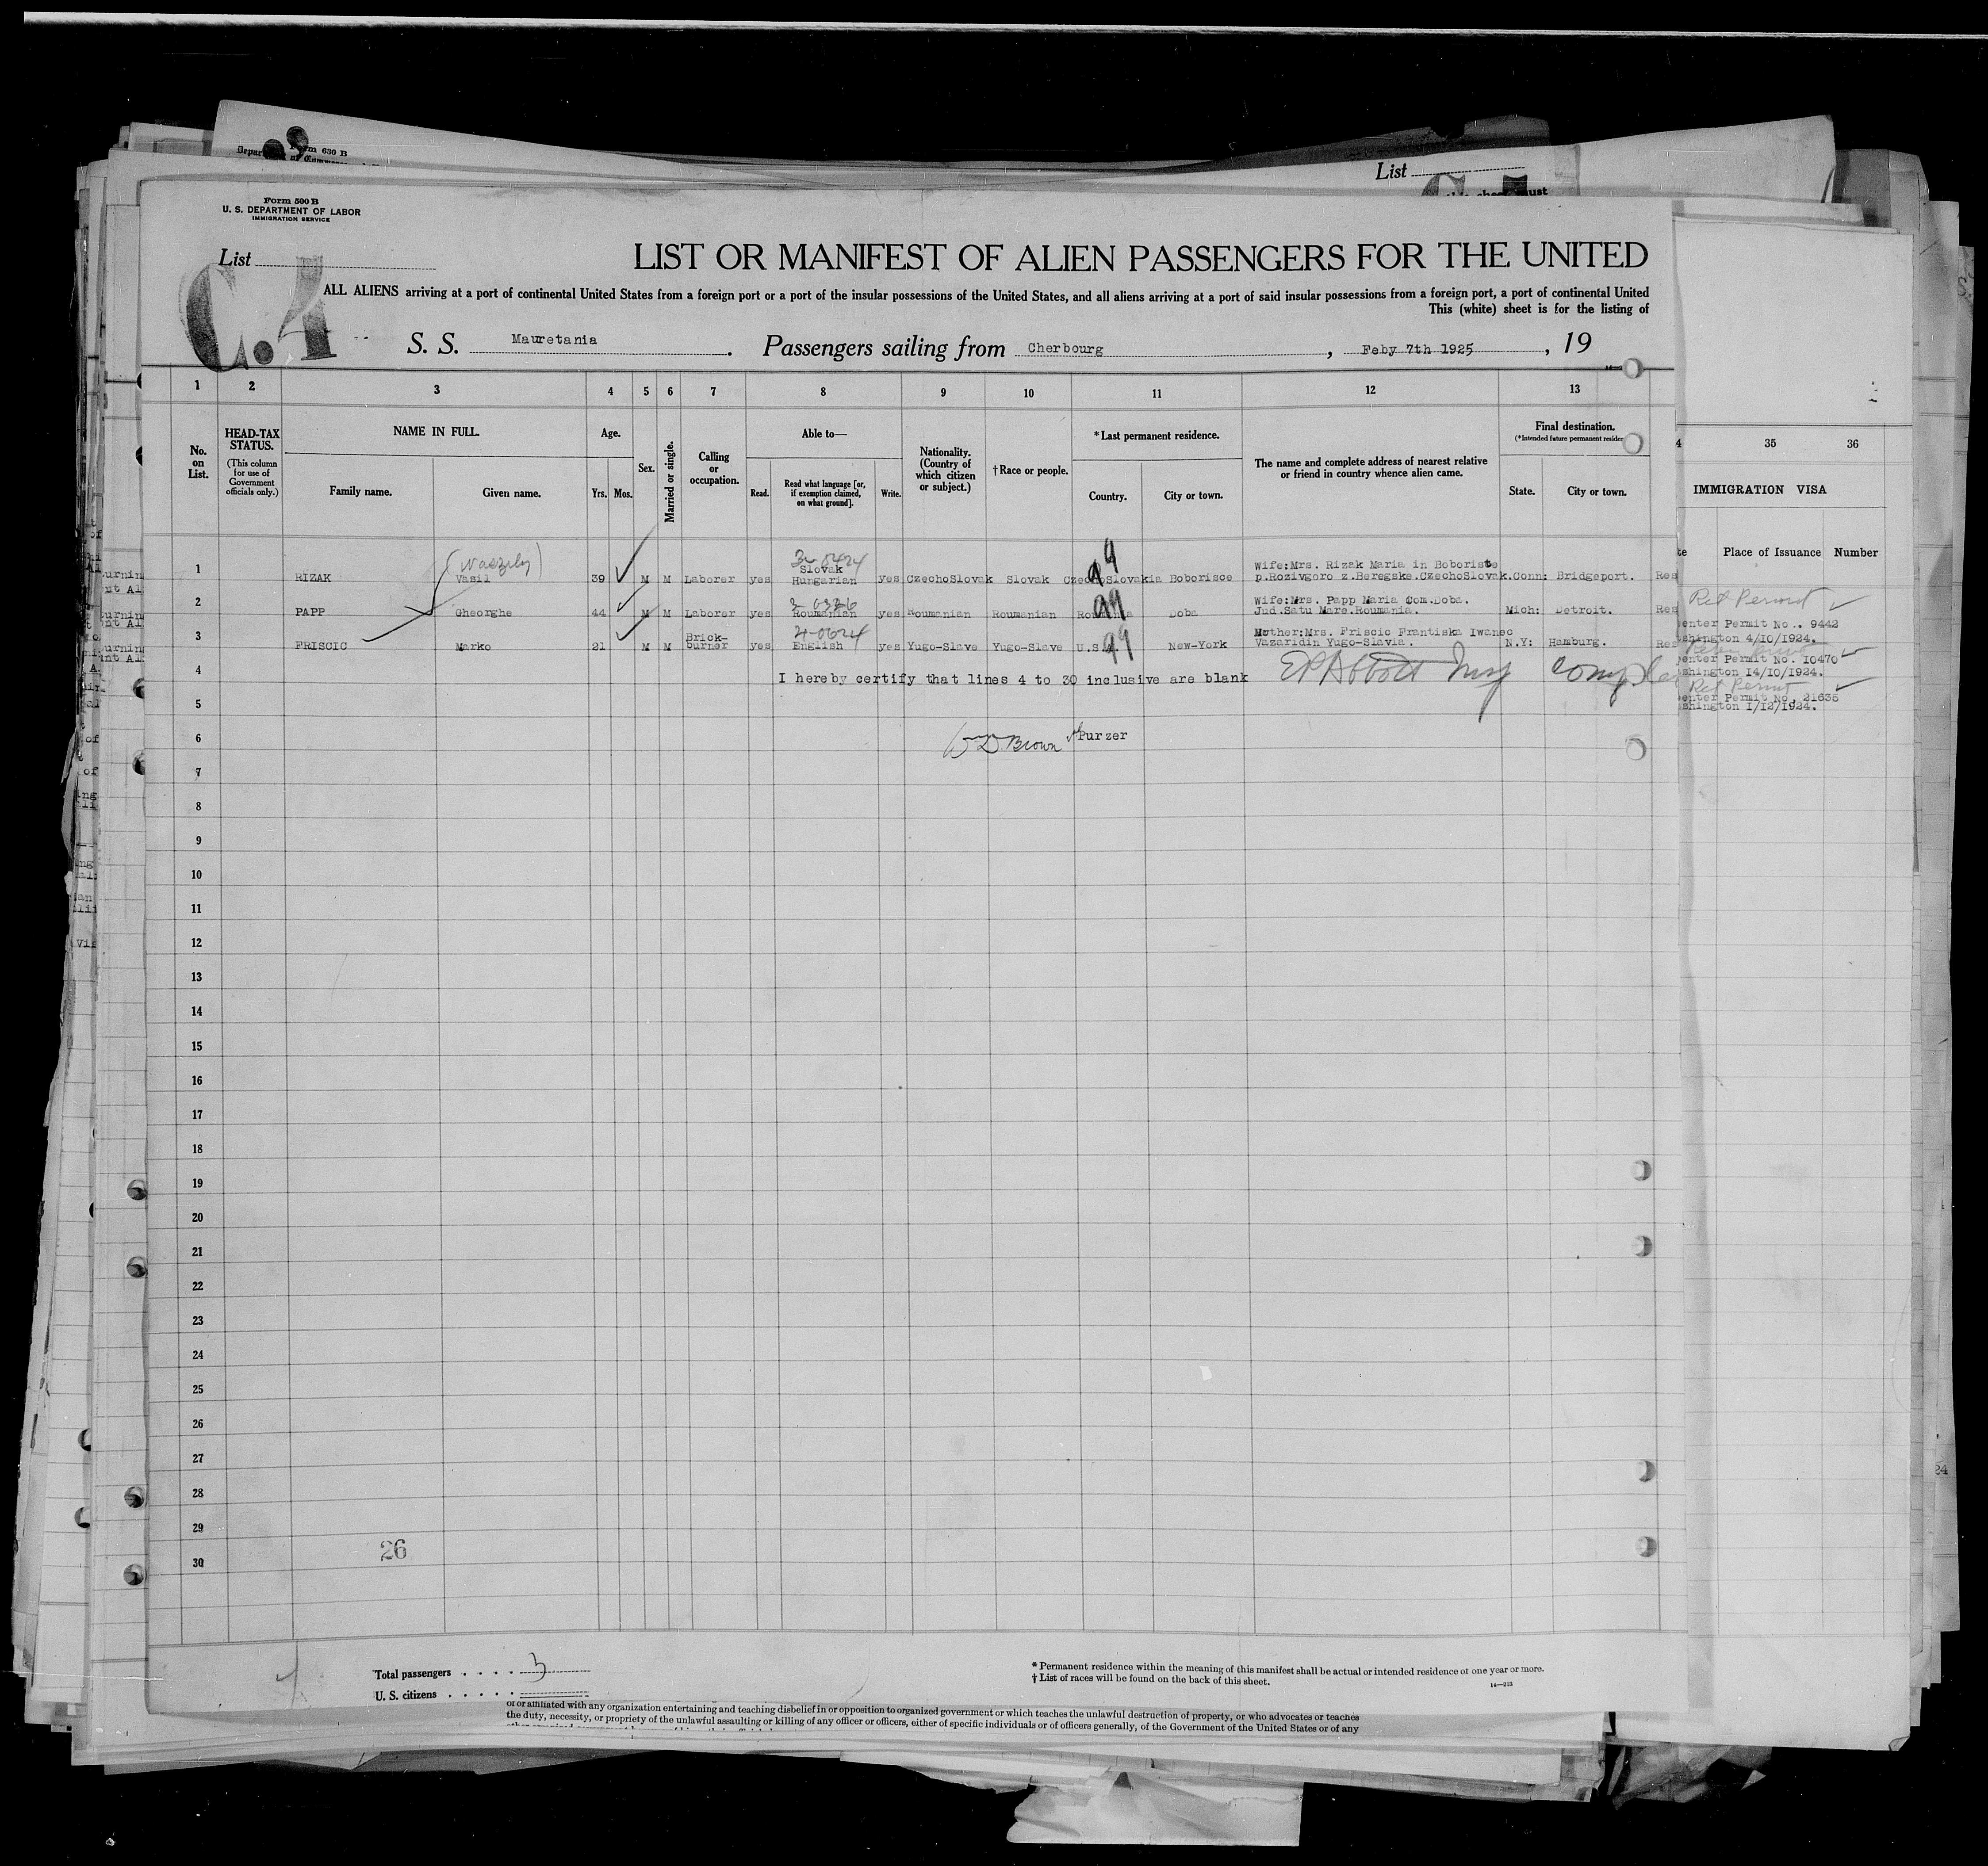 Form 630 B
List
Form 500 B
U. S. DEPARTMENT OF LABOR
IMMIGRATION SERVICE
List
C.4
LIST OR MANIFEST OF ALIEN PASSENGERS FOR THE UNITED
ALL ALIENS arriving at a port of continental United States from a foreign port or a port of the insular possessions of the United States, and all aliens arriving at a port of said insular possessions from a foreign port, a port of continental United
This (white) sheet is for the listing of
S. S. Mauretania. Passengers sailing from Cherbourg, Feby 7th 1925, 19
1 2 3 4 5 6 7 8 9 10 11 12 13
No. on List.
HEAD-TAX STATUS.
(This column for use of Government officials only.)
NAME IN FULL.
Family name. Given name.
Age.
Yrs. Mos.
Sex.
Married or single.
Calling or occupation.
Able to—
Read. Read what language [or, if exemption claimed, on what ground]. Write.
Nationality. (Country of which citizen or subject.)
†Race or people.
*Last permanent residence.
Country. City or town.
The name and complete address of nearest relative or friend in country whence alien came.
Final destination.
State. City or town.
35 36
IMMIGRATION VISA
Place of Issuance Number
(Waszily) 3-0424
Slovak Wife:Mrs. Rizak Maria in Boboriste
1 RIZAK Vasil 39 M M Laborer yes Hungarian yes CzechoSlovak Slovak CzechoSlovakia Boborisce p.Rozivgoro z.Beregske.CzechoSlovak. Conn: Bridgeport.
Wife:Mrs. Papp Maria Com.Doba.
2 PAPP Gheorghe 44 M M Laborer yes Roumanian yes Roumanian Roumanian Roumania Doba Jud.Satu Mare.Roumania. Mich: Detroit. Ret Permit
enter Permit No.. 9442
shington 4/10/1924.
Brick- Mother:Mrs. Friscic Frantiska Iwanec
3 FRISCIC Marko 21 M M burner yes English yes Yugo-Slave Yugo-Slave U.S.A. New-York Vazaridin Yugo-Slavia. N.Y: Hamburg.
enter Permit No. 10470
shington 14/10/1924.
4 I hereby certify that lines 4 to 30 inclusive are blank EP Abbott Insp
Ret Permit
enter Permit No. 21635
shington 1/12/1924.
5
6 Wm D Brown Purzer
7
8
9
10
11
12
13
14
15
16
17
18
19
20
21
22
23
24
25
26
27
28
29
30
26
Total passengers . . . . 3
U. S. citizens . . . . .
* Permanent residence within the meaning of this manifest shall be actual or intended residence of one year or more.
† List of races will be found on the back of this sheet.
14—213
or or affiliated with any organization entertaining and teaching disbelief in or opposition to organized government or which teaches the unlawful destruction of property, or who advocates or teaches
the duty, necessity, or propriety of the unlawful assaulting or killing of any officer or officers, either of specific individuals or of officers generally, of the Government of the United States or of any